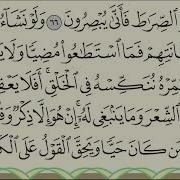 الصِّرَٰطَ فَأَنَّىٰ يُبْصِرُونَ ٦٦ وَلَوْ نَشَآءُ
انَتِهِمْ فَمَا ٱسْتَطَٰعُوا۟ مُضِيًّا وَلَا يَ
مِّرْهُ نُنَكِّسْهُ فِى ٱلْخَلْقِ ۖ أَفَلَا يَعْقِ
ٱلشِّعْرَ وَمَا يَنۢبَغِى لَهُۥٓ ۚ إِنْ هُوَ إِلَّا ذِكْرٌ وَقُ
مَن كَانَ حَيًّا وَيَحِقَّ ٱلْقَوْلُ عَلَى ٱلْكَ